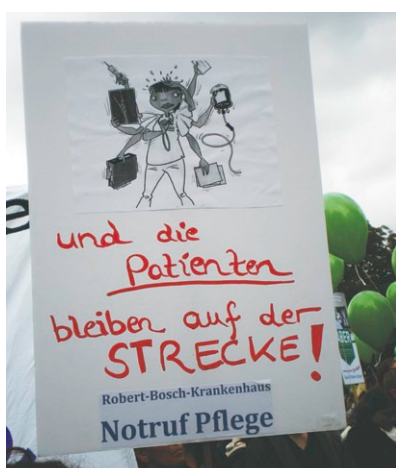 und die
Patienten
bleiben auf der
STRECKE!
Robert-Bosch-Krankenhaus
Notruf Pflege